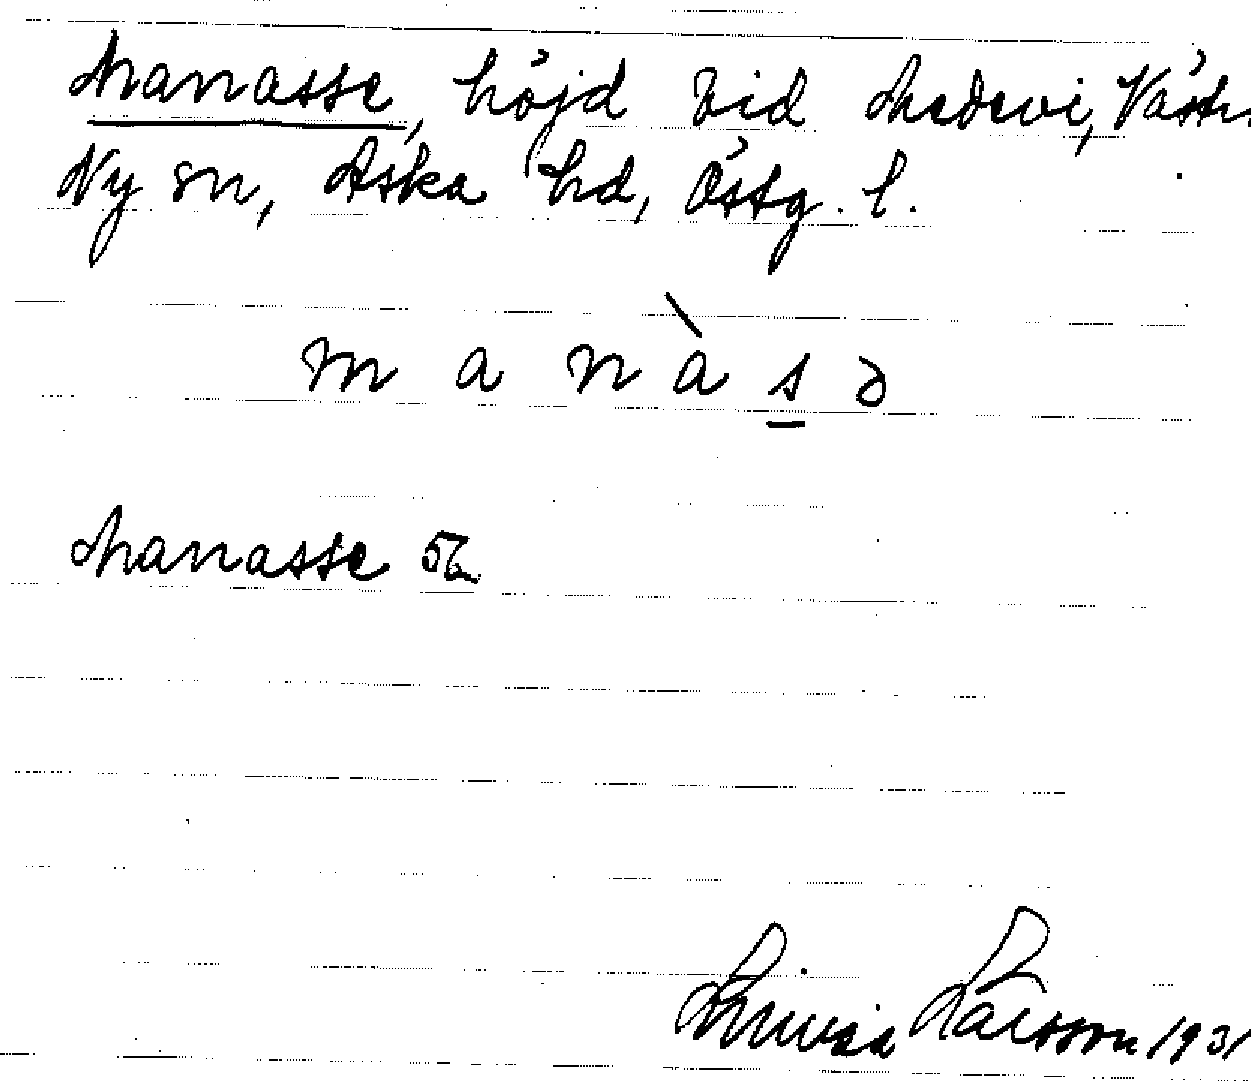 Manasse, höjd vid Medevi, Västr.
Ny sn, Aska hd, Östg. l.
m a n à s ə
Manasse
Larsson 1931